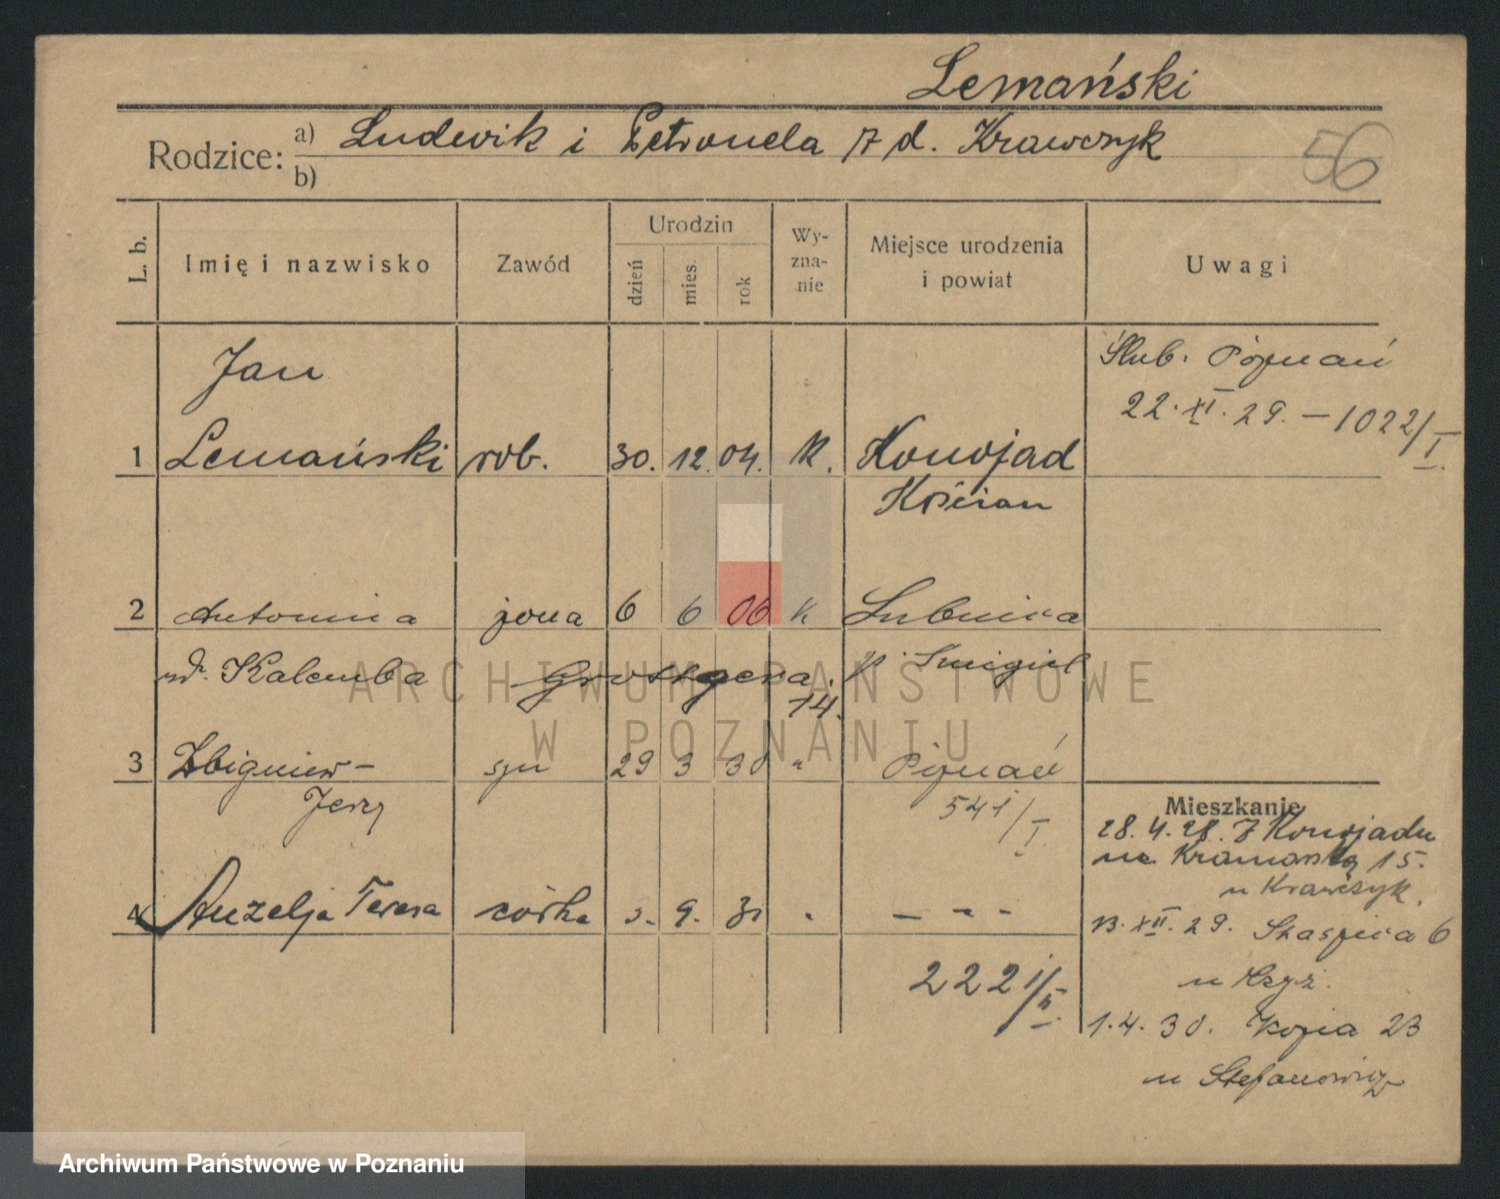 Lemański
Rodzice: a) Ludwik i Petronela z d. Krawczyk
b)
56
L. b.
Imię i nazwisko
Zawód
Urodzin
dzień
mies.
rok
Wy-
zna-
nie
Miejsce urodzenia
i powiat
Uwagi
Jan
Ślub. Poznań
22. XI. 29. – 1022/I
1 Lemański rob. 30. 12. 04. k. Konojad
Kościan
2 Antonina żona 6 6 06 k Lubnica
ur. Kalemba p. Śmigiel
14.
3 Zbigniew – syn 29 3 30 " Poznań
Jerzy 541/I
Mieszkanie
28. 4. 28. Z Konojadu
na Kramarską 15.
u Krawczyk.
4 Anzelja Teresa córka 9. 31 " – – –
13. XII. 29. 6
2221/II
1. 4. 30. 23
u Stefanowicz
ARCHIWUM PAŃSTWOWE
W POZNANIU
Archiwum Państwowe w Poznaniu